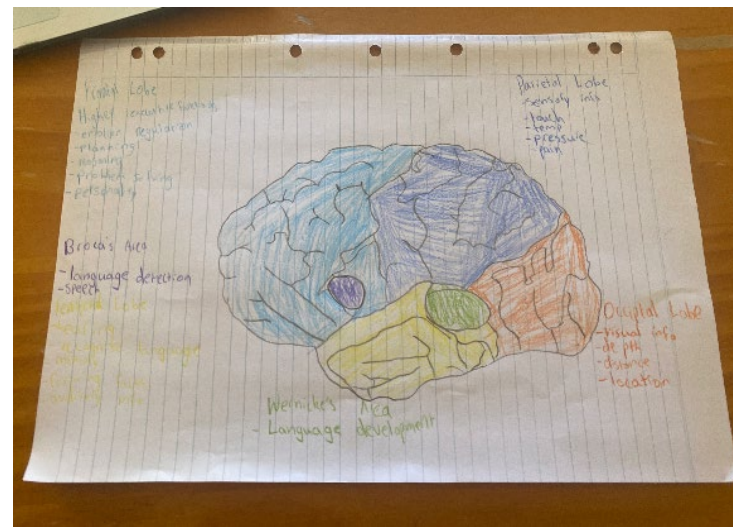 Frontal Lobe
Higher executive functions
- emotion regulation
- planning
- reasoning
- problem solving
- personality
Parietal Lobe
sensory info
- touch
- temp
- pressure
- pain
Broca's Area
- language detection
- speech
Temporal Lobe
- hearing
- recognise language
- forming
Occiptal Lobe
- visual info
- depth
- distance
- location
Wernicke's Area
- Language development